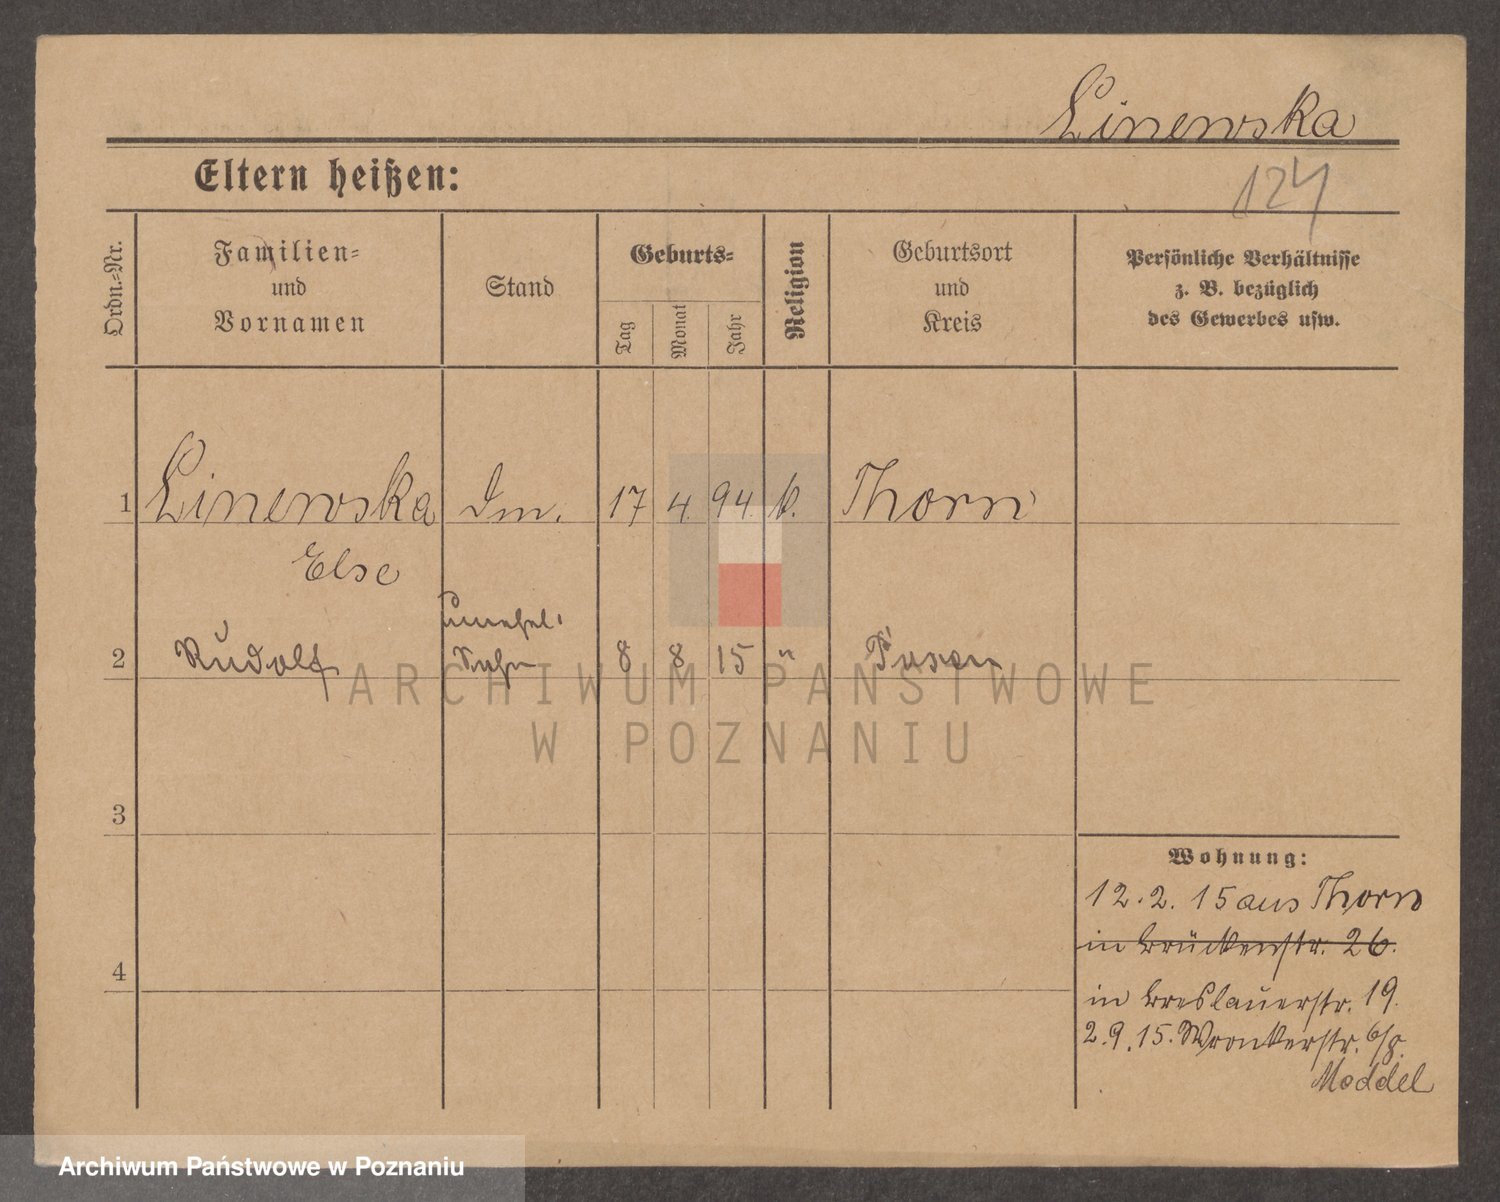 Linewska
Eltern heißen:
124
Ordn.-Nr.
Familien-
und
Vornamen
Stand
Geburts-
Tag
Monat
Jahr
Religion
Geburtsort
und
Kreis
Persönliche Verhältnisse
z. B. bezüglich
des Gewerbes usw.
1 Linewska 17 4. 94. k. Thorn
Else
unehel.
2 Rudolf Sohn 8 8 15 " Posen
ARCHIWUM PAŃSTWOWE
W POZNANIU
3
4
Wohnung:
12. 2. 15 aus Thorn
in Brückenstr. 26.
in Breslauerstr. 19.
2. 9. 15. Wronkerstr. 6/8.
Moddel
Archiwum Państwowe w Poznaniu